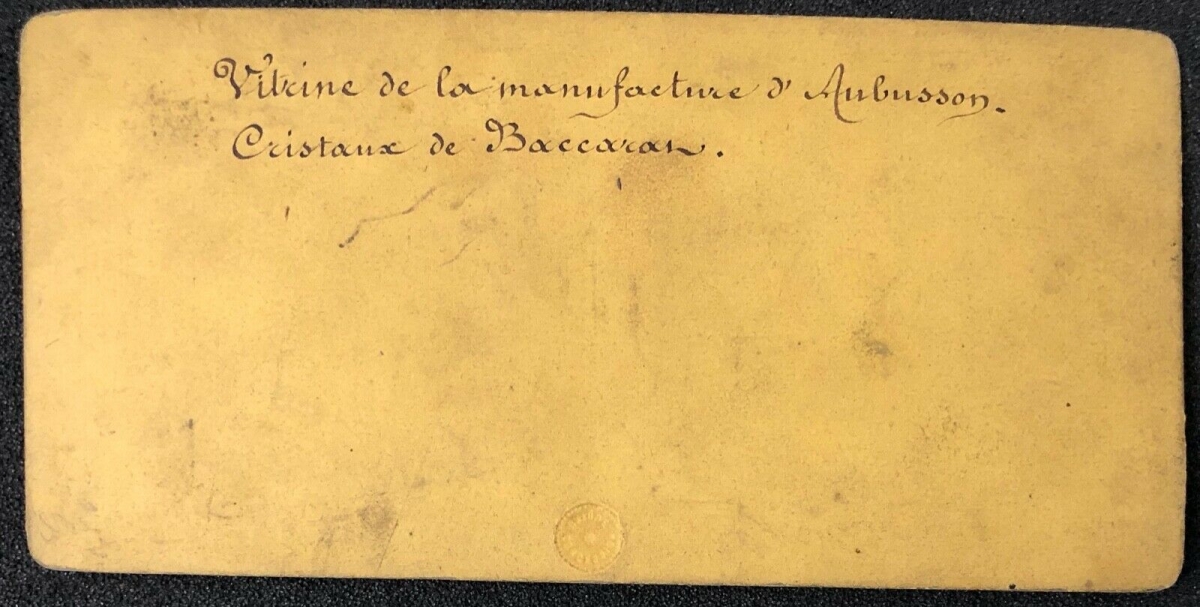 Vitrine de la manufacture d'Aubusson.
Cristaux de Baccarat.